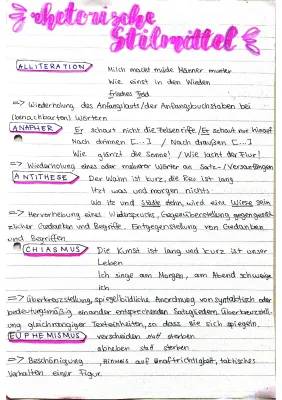 rhetorische
Stilmittel
ALLITERATION Milch macht müde Männer munter
Wie einst in den Wieden
frisches Tod
=> Wiederholung des Anfanglauts / der Anfangsbuchstaben bei
(benachbarten) Wörtern
ANAPHER Er schaut nicht die Felsenriffe / Er schaut nur hinauf
Nach drinnen [...] / Nach draußen [...]
Wie glänzt die Sonne! / Wie lacht der Flur!
=> Wiederholung eines oder mehrerer Wörter an Satz-/Versanfängen
ANTITHESE Der Wahn ist kurz, die Reu ist lang
Itzt was und morgen nichts
Wo itz und Städte stehn, wird eine Wiese sein
=> Hervorhebung eines Widerspruchs, Gegenüberstellung gegensätz-
licher Gedanken und Begriffe. Entgegenstellung von Gedanken
und Begriffen
CHIASMUS Die Kunst ist lang und kurz ist unser
Leben
Ich singe am Morgen, am Abend schweige
ich
=> Überkreuzstellung, spiegelbildliche Anordnung von syntaktisch oder
bedeutungsmäßig einander entsprechenden Satzgliedern. Überkreuzstell-
ung gleichrangiger Texteinheiten, so dass sie sich spiegeln.
EUPHEMISMUS verscheiden statt sterben
ableben statt sterben
=> Beschönigung, Hinweis auf Unaufrichtigkeit, taktisches
Verhalten einer Figur